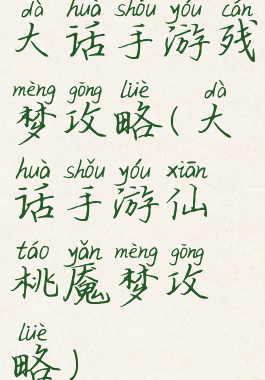 dà huà shǒu yóu cán
大话手游残
mèng gōng lüè dà
梦攻略(大
huà shǒu yóu xiān
话手游仙
táo yǎn mèng gōng
桃魇梦攻
lüè
略)